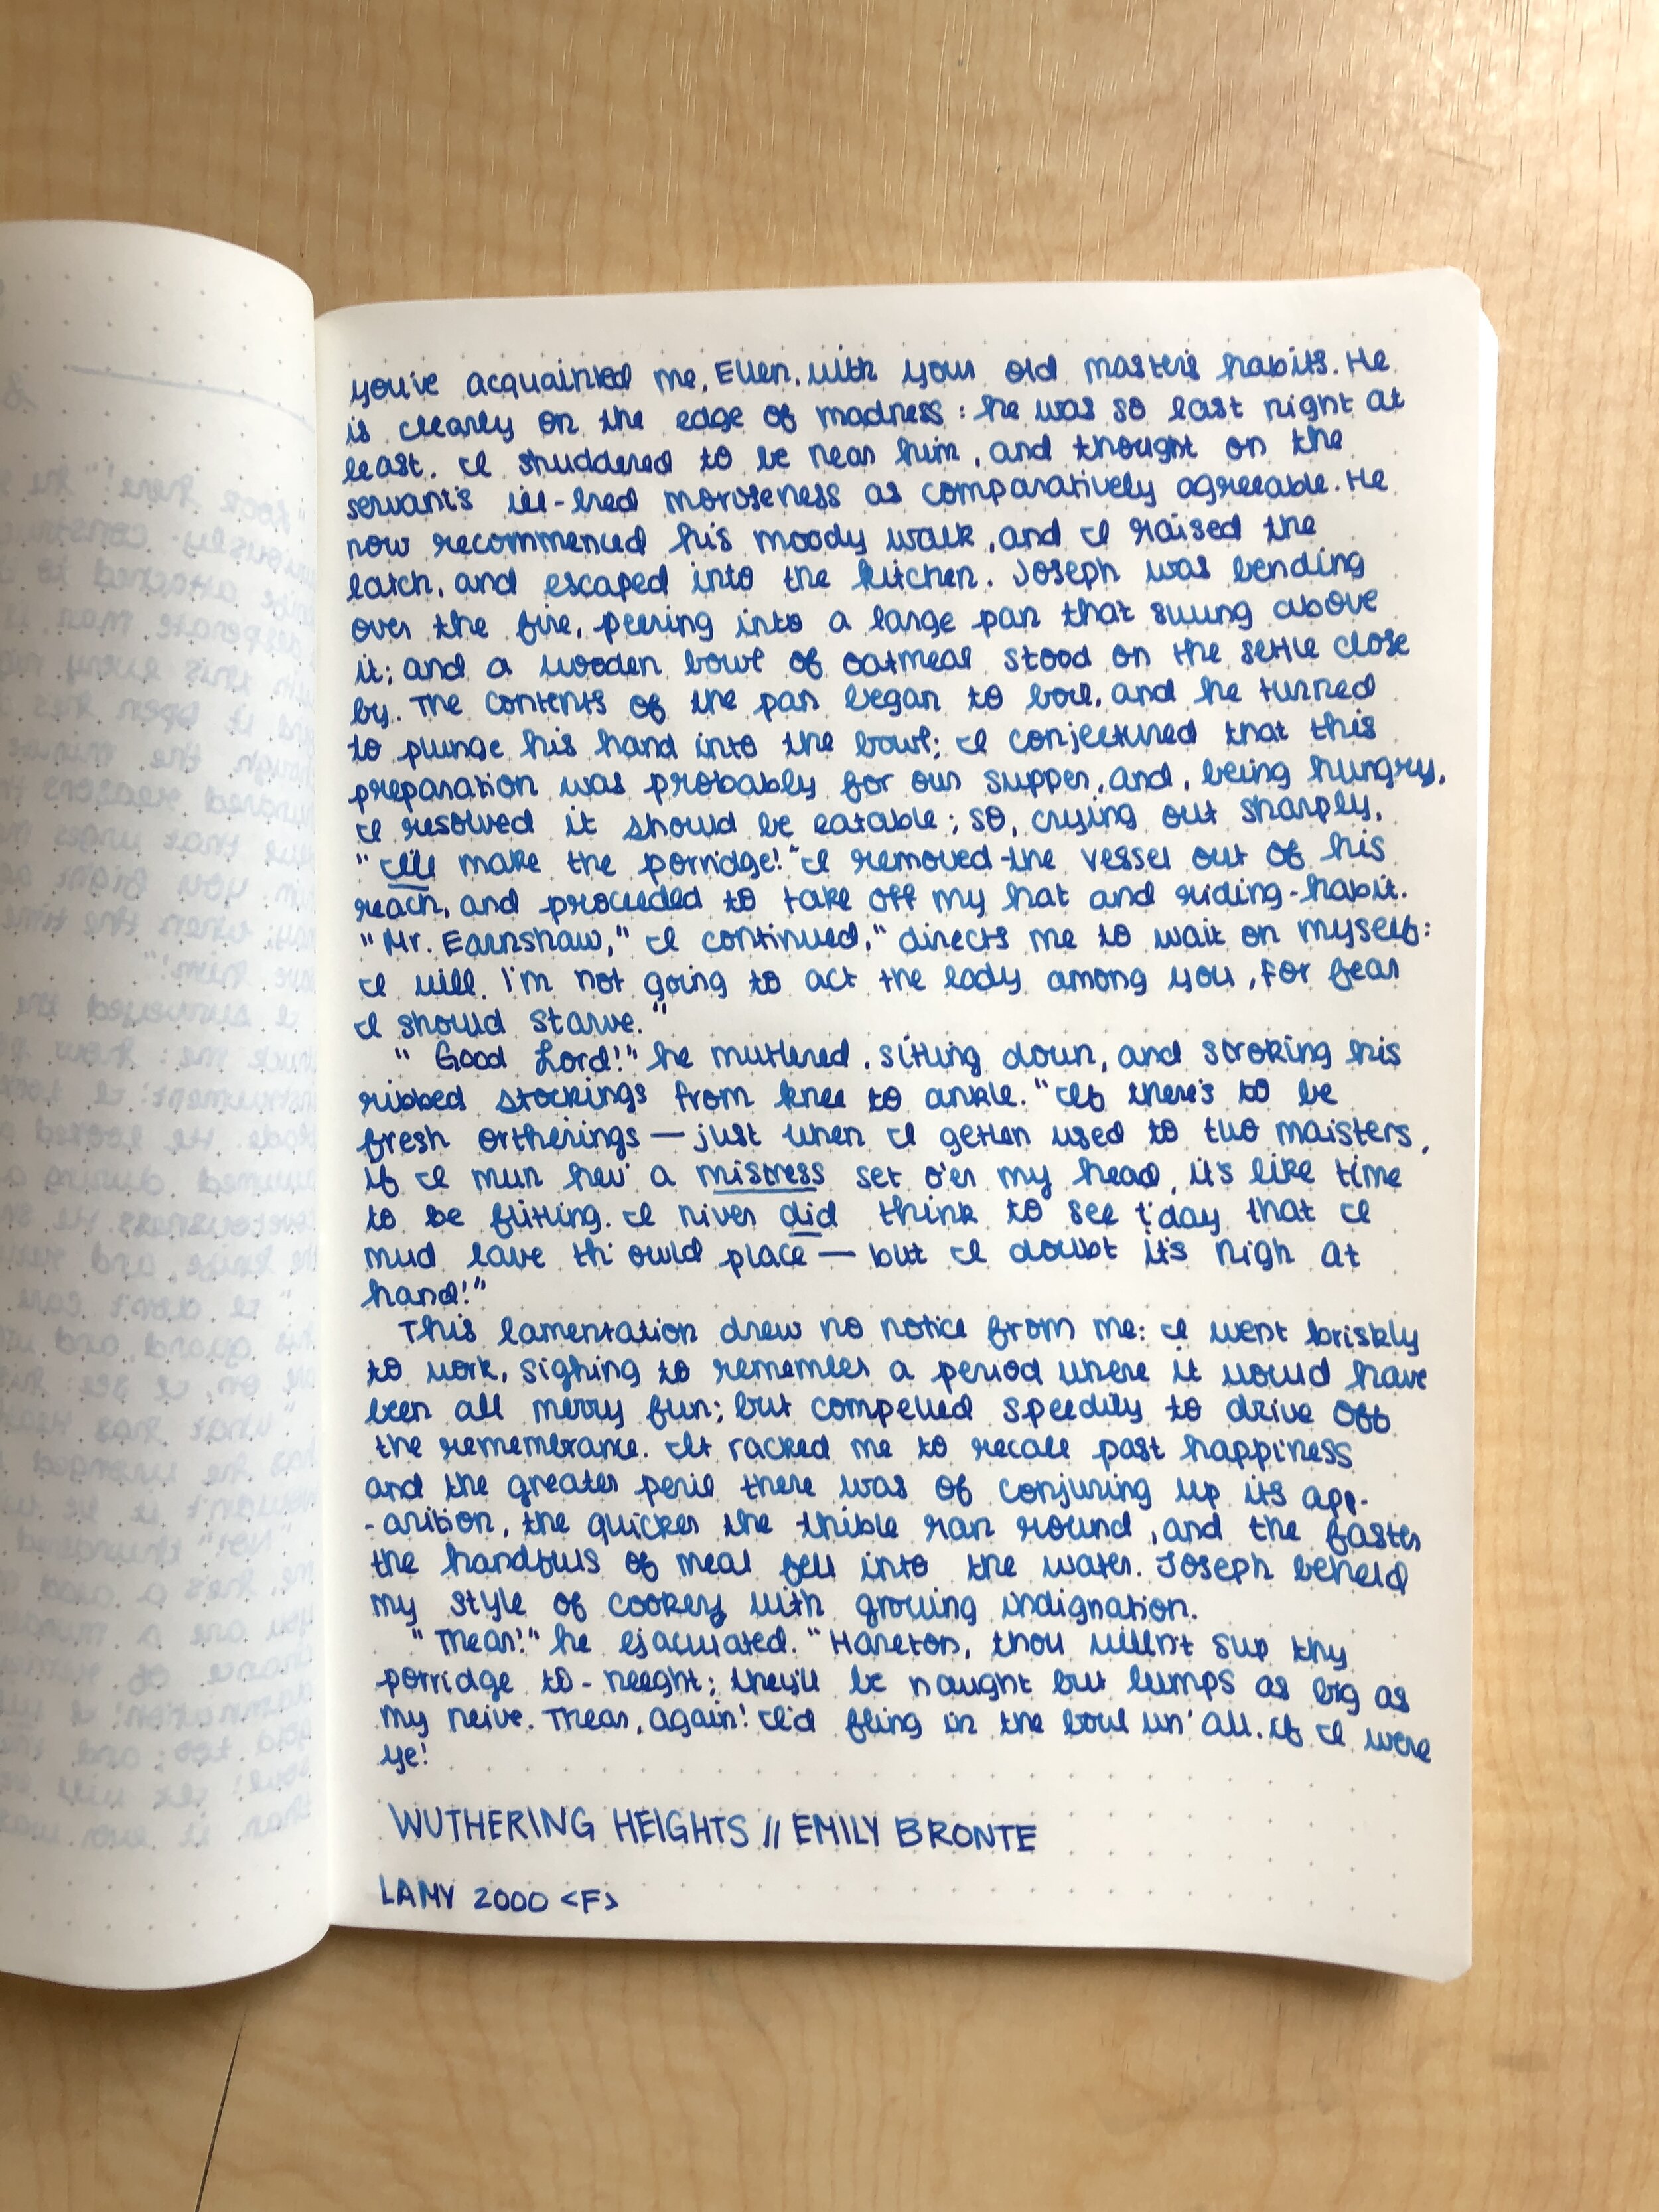 you've acquainted me, Ellen, with your old master's habits. He
is clearly on the edge of madness: he was so last night at
least. I shuddered to be near him, and thought on the
servant's ill-bred moroseness as comparatively agreeable. He
now recommenced his moody walk, and I raised the
latch, and escaped into the kitchen. Joseph was bending
over the fire, peering into a large pan that swung above
it; and a wooden bowl of oatmeal stood on the settle close
by. The contents of the pan began to boil, and he turned
to plunge his hand into the bowl; I conjectured that this
preparation was probably for our supper, and, being hungry,
I resolved it should be eatable; so, crying out sharply,
"I'll make the porridge!" I removed the vessel out of his
reach, and proceeded to take off my hat and riding-habit.
"Mr. Earnshaw," I continued, "directs me to wait on myself:
I will. I'm not going to act the lady among you, for fear
I should starve."
"Good Lord!" he muttered, sitting down, and stroking his
ribbed stockings from knee to ankle. "If there's to be
fresh ortherings — just when I getten used to two maisters,
if I mun hev' a mistress set o'er my head, it's like time
to be flitting. I niver did think to see t'day that I
mud lave th' owld place — but I doubt it's nigh at
hand!"
This lamentation drew no notice from me: I went briskly
to work, sighing to remember a period where it would have
been all merry fun; but compelled speedily to drive off
the remembrance. It racked me to recall past happiness
and the greater peril there was of conjuring up its app-
-arition, the quicker the thible ran round, and the faster
the handfuls of meal fell into the water. Joseph beheld
my style of cookery with growing indignation.
"Thear!" he ejaculated. "Hareton, thou willn't sup thy
porridge to-neeght; they'll be naught but lumps as big as
my neive. Thear, again! I'd fling in the bowl un' all, if I were
ye!
WUTHERING HEIGHTS // EMILY BRONTE
LAMY 2000 <F>